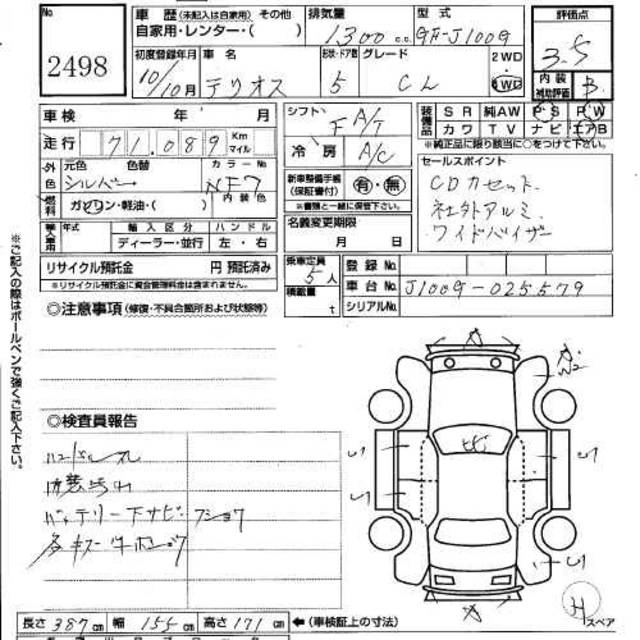 No
2498
車歴(未記入は自家用) その他
自家用・レンター・( )
排気量
1300 c.c.
型式
GF-J100G
評価点
3.5
初度登録年月
10/10月
車名
テリオス
形状・ドア数
5
グレード
CL
2WD
4WD
内装
補助評価
B
車検 年 月
走行 71,089 Km マイル
外色
元色 色替
シルバー
カラーNo
NF7
燃料
ガソリン・軽油・( )
内装色
輸入車用
年式
輸入区分
ディーラー・並行
ハンドル
左・右
リサイクル預託金 円 預託済み
※リサイクル預託金に資金管理料金は含まれません。
シフト
F A/T
冷房
A/C
新車整備手帳
(保証書付)
有・無
※書類と一緒に保管下さい。
名義変更期限
月 日
乗車定員
5人
積載量
t
装備品
SR 純AW PS PW
カワ TV ナビ エアB
※純正品に限り該当に○をつけて下さい。
セールスポイント
CDカセット
社外アルミ
ワイドバイザー
登録No
車台No J100G-025579
シリアルNo
◎注意事項(修復・不具合箇所および状態等)
◎検査員報告
バッテリー下サビ・フショク
※ご記入の際はボールペンで強くご記入下さい。
スペア
長さ 387cm 幅 155cm 高さ 171cm ←(車検証上の寸法)